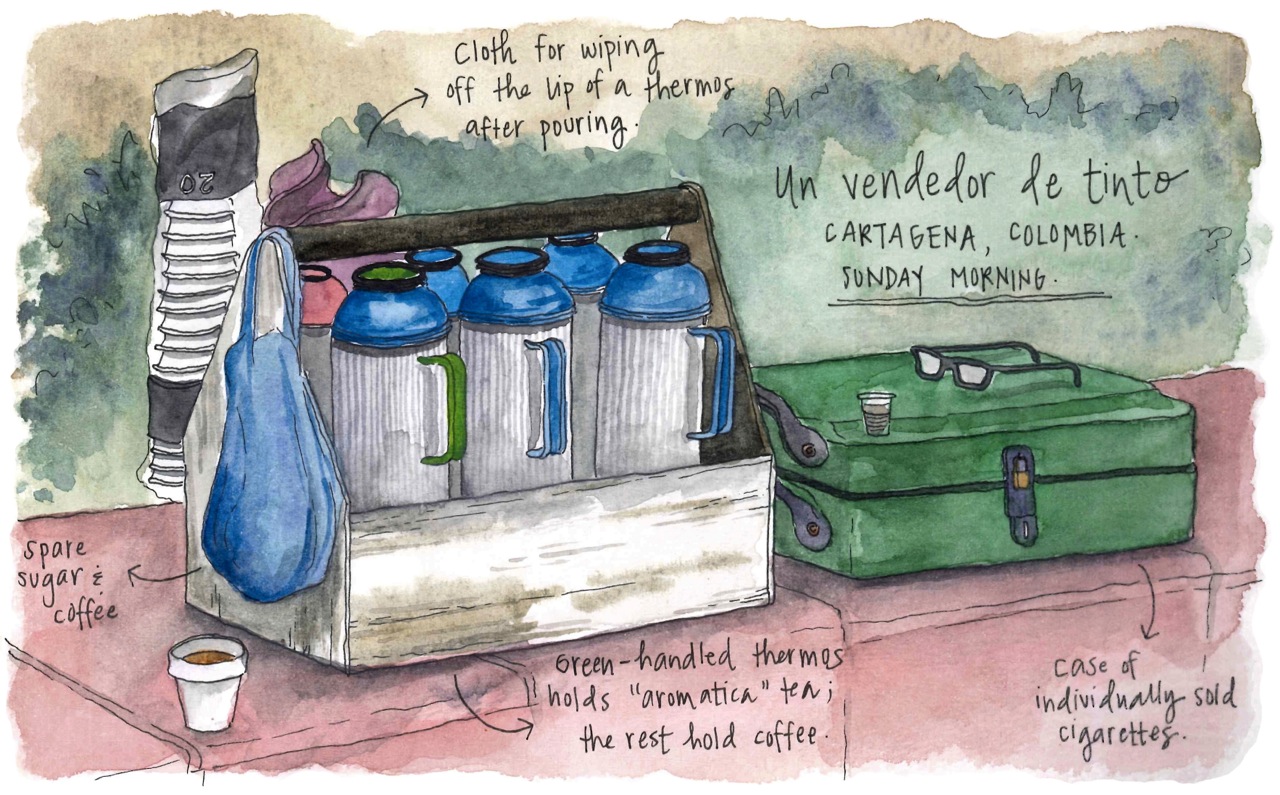 Cloth for wiping
off the lip of a thermos
after pouring.
20
Un vendedor de tinto
CARTAGENA, COLOMBIA.
SUNDAY MORNING.
spare
sugar &
coffee
Green-handled thermos
holds "aromatica" tea;
the rest hold coffee.
case of
individually sold
cigarettes.